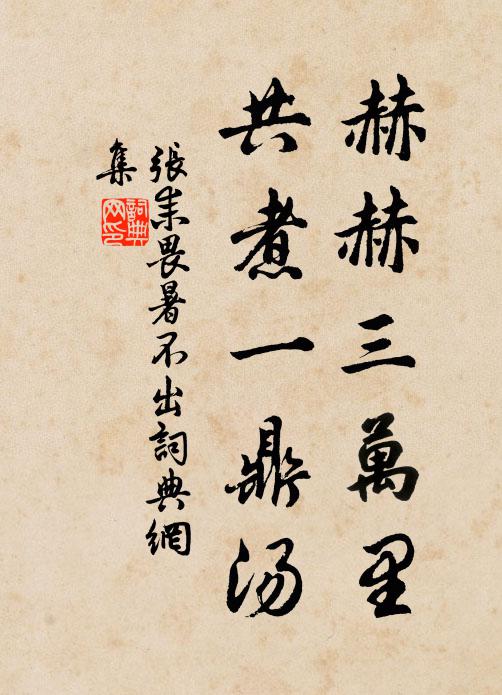 赫赫三萬里
共煮一鼎汤
張耒畏暑不出詞典網
集
詞典网印